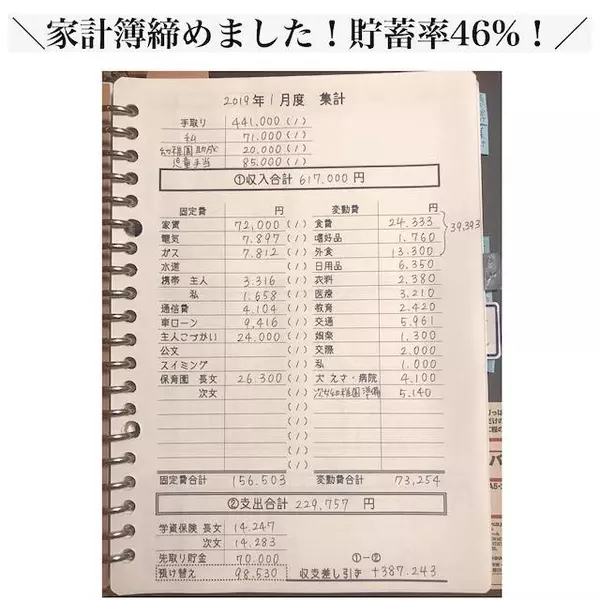 ＼家計簿締めました！貯蓄率46%！／
2019年1月度 集計
手取り 441,000 (/)
私 71,000 (/)
幼稚園助成 20,000 (/)
児童手当 85,000 (/)
①収入合計 617,000 円
固定費 円 変動費 円
家賃 72,000 (/) 食費 24,333 39,393
電気 7,897 (/) 嗜好品 1,760
ガス 7,812 (/) 外食 13,300
水道 (/) 日用品 6,350
携帯 主人 3,316 (/) 衣料 2,380
私 1,658 (/) 医療 3,210
通信費 4,104 (/) 教育 2,420
車ローン 9,416 (/) 交通 5,961
主人こづかい 24,000 (/) 娯楽 1,300
公文 (/) 交際 2,000
スイミング (/) 私 1,000
保育園 長女 26,300 (/) 犬 えさ・病院 4,100
次女 (/) 次女幼稚園準備 5,140
(/)
(/)
(/)
(/)
(/)
固定費合計 156,503 変動費合計 73,254
②支出合計 229,757 円
学資保険 長女 14,247
次女 14,283
先取り貯金 70,000 ①−②
預け替え 98,530 収支差し引き +387,243